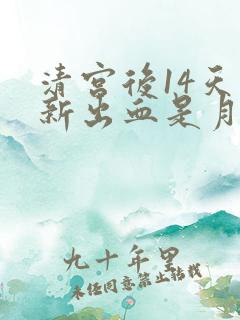 清宫後14天
新出血是月
九十年里
未经同意禁止转载